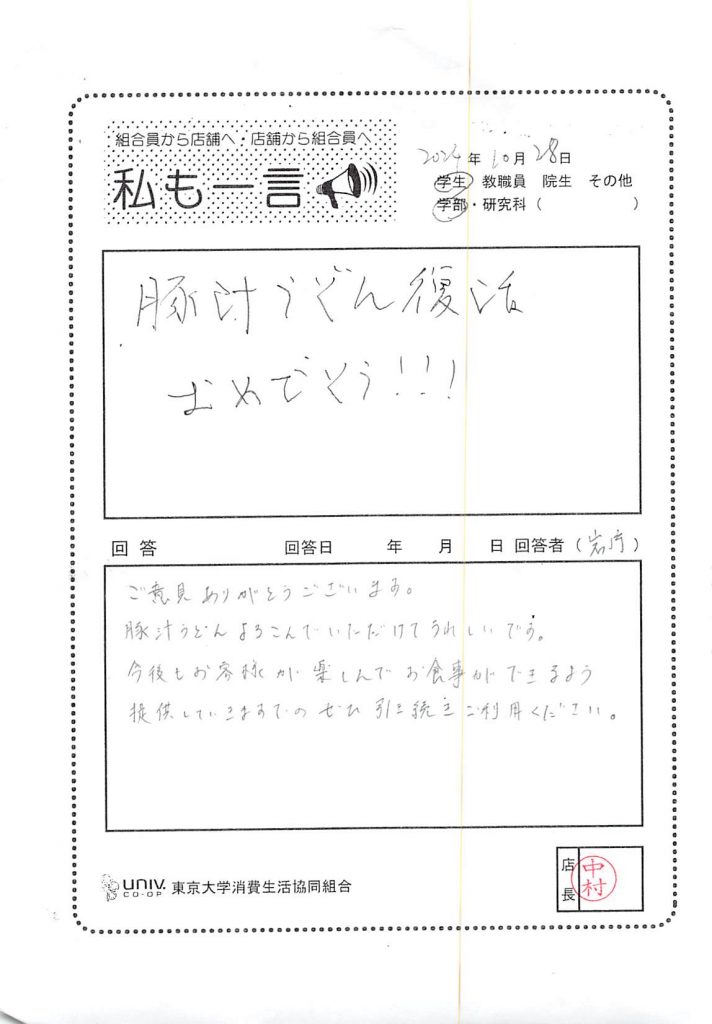 組合員から店舗へ・店舗から組合員へ
私も一言
2024年10月28日
学生 教職員 院生 その他
学部・研究科（ ）
豚汁うどん復活
おめでとう!!!
回答 回答日 年 月 日 回答者（岩府）
ご意見ありがとうございます。
豚汁うどんよろこんでいただけてうれしいです。
今後もお客様が楽しんでお食事ができるよう
提供していきますのでぜひ引き続きご利用ください。
UNIV. CO-OP 東京大学消費生活協同組合
店長
中村